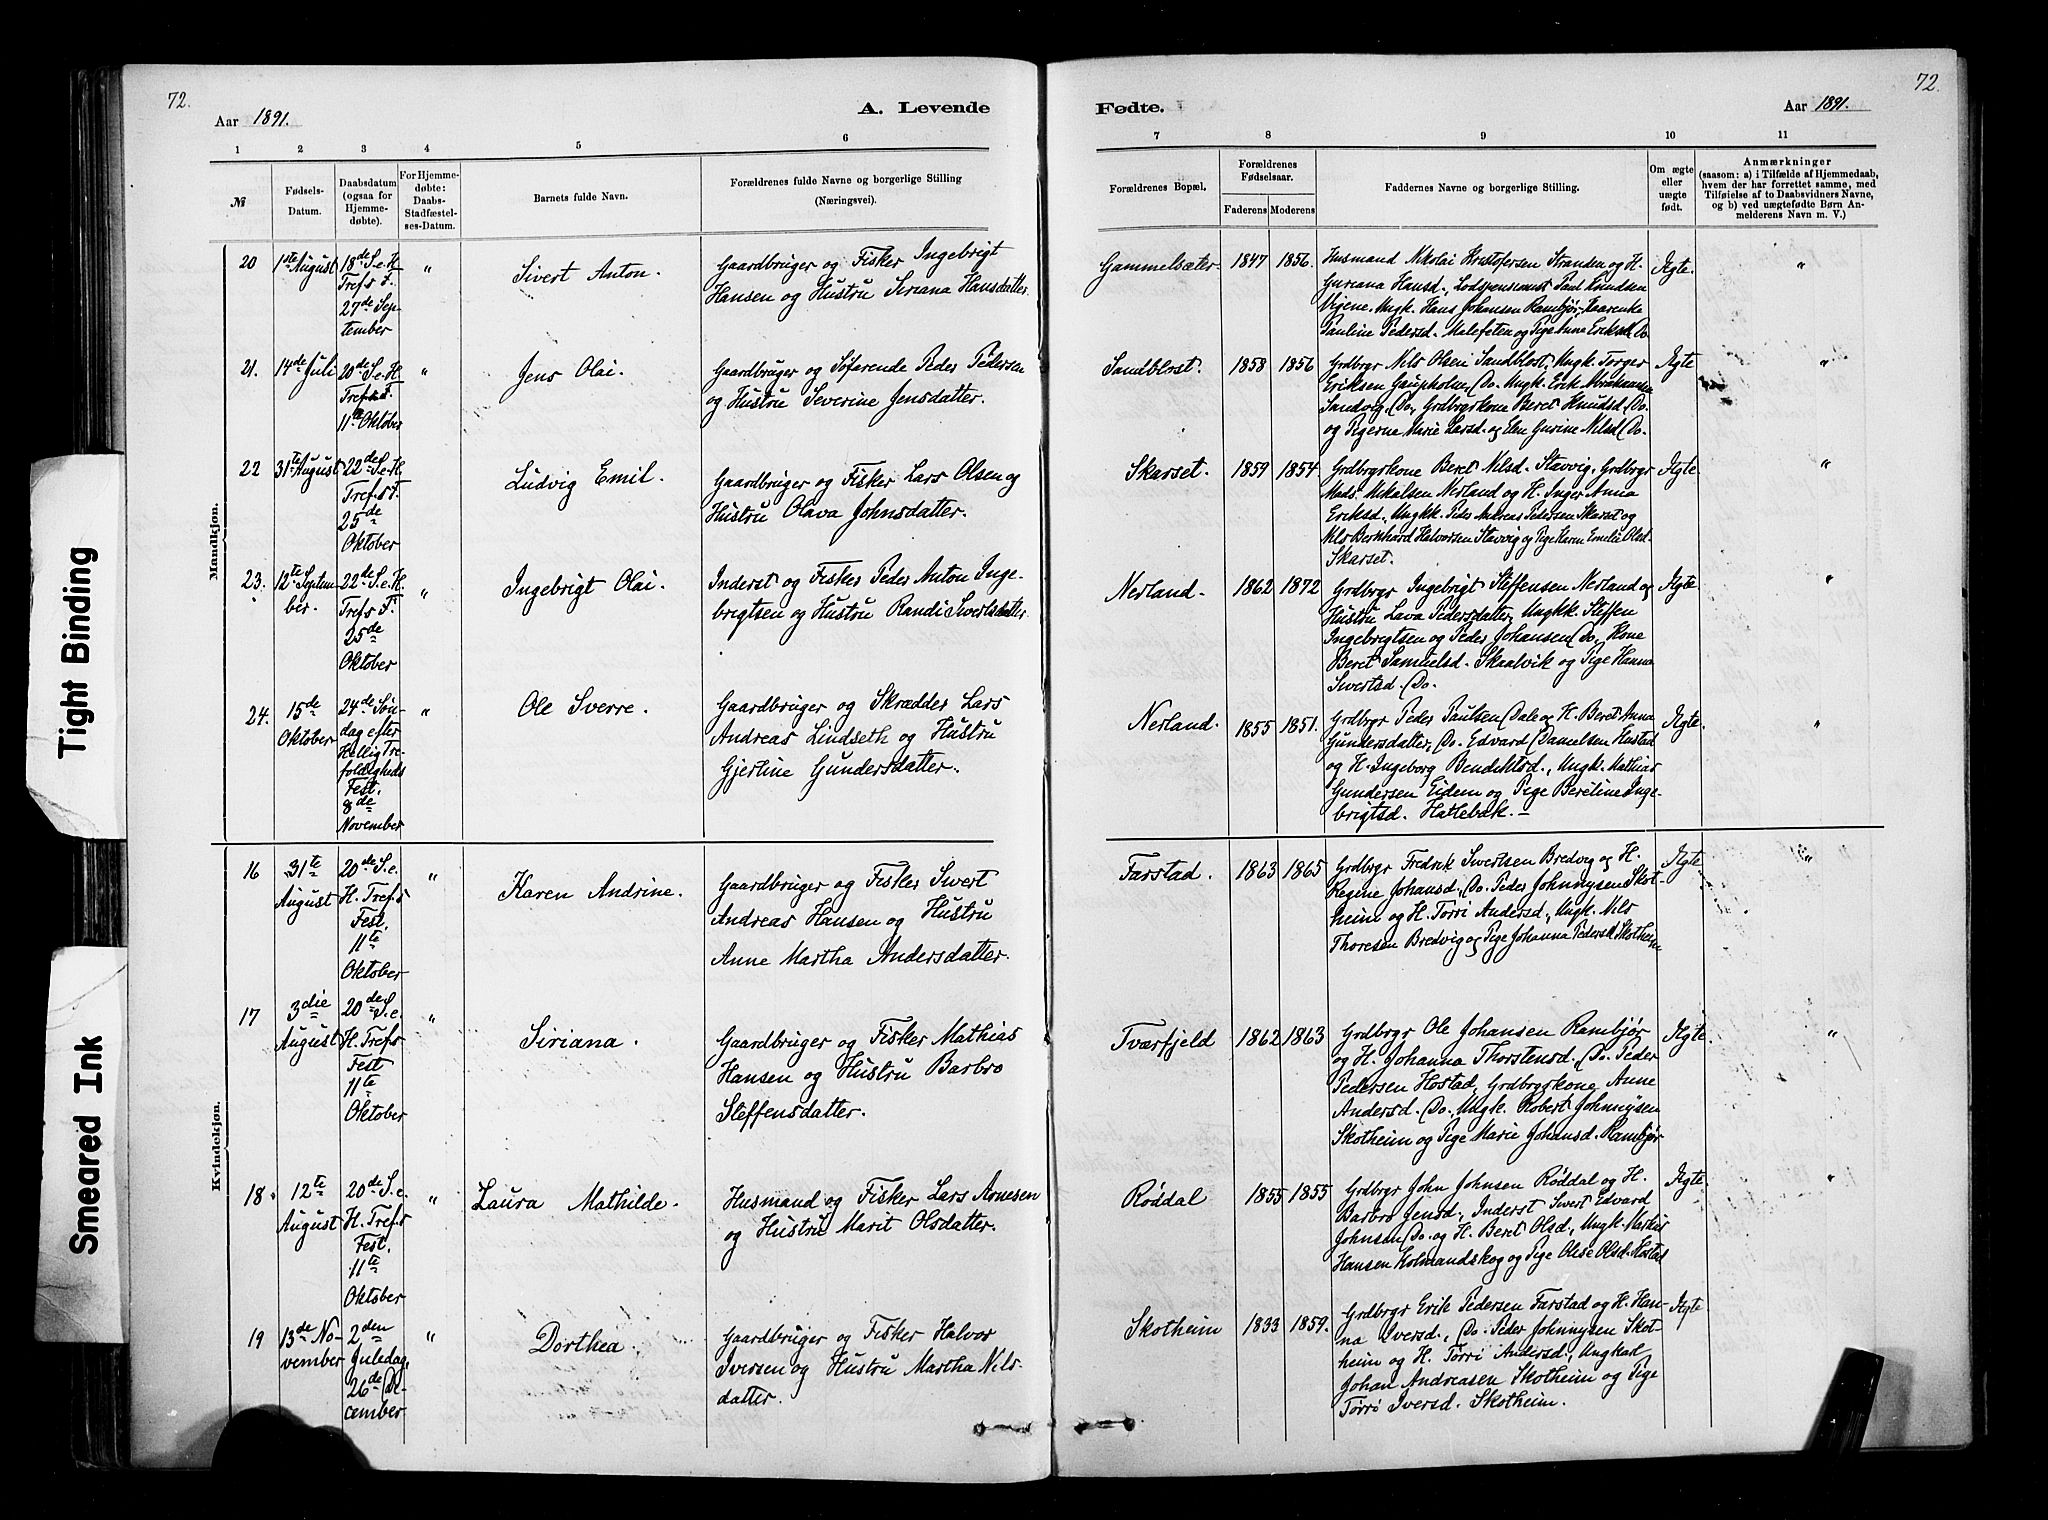 72.
Aar 1891.
A. Levende
1 2 3 4 5 6
№
Fødsels-
Datum.
Daabsdatum
(ogsaa for
Hjemme-
døbte).
For Hjemme-
døbte:
Daabs-
Stadfæstel-
ses-Datum.
Barnets fulde Navn.
Forældrenes fulde Navne og borgerlige Stilling
(Næringsvei).
Mandkjøn.
20
1ste August
18de S.e.H.
Tref.s F.
27de Sep-
tember
"
Sivert Anton.
Gaardbruger og Fisker Ingebrigt
Hansen og Hustru Siriana Hansdatter.
21.
14de Juli
20de S.e.H.
Tref.s F.
11te Oktober
"
Jens Olai.
Gaardbruger og Søfarende Peder Pedersen
og Hustru Severine Jensdatter.
22
31te August
22de S.e.H.
Tref.s F.
25de
Oktober
"
Ludvig Emil.
Gaardbruger og Fisker Lars Olsen og
Hustru Olava Johnsdatter.
23.
12te Septem-
ber.
22de S.e.H.
Tref.s F.
25de
Oktober
"
Ingebrigt Olai.
Inderst og Fisker Peder Anton Inge-
brigtsen og Hustru Randi Sivertsdatter
24.
15de
Oktober
24de Søn-
dag efter
Hellig Tre-
foldigheds
Fest,
8de
November
"
Ole Sverre.
Gaardbruger og Skrædder Lars
Andreas Lindseth og Hustru
Gjertine Gundersdatter.
Kvindekjøn.
16
31te
August
20de S.e.
H. Tref.s
Fest,
11te
Oktober
"
Karen Andrine.
Gaardbruger og Fisker Sivert
Andreas Hansen og Hustru
Anne Martha Andersdatter.
17
3die
August
20de S.e.
H. Tref.s
Fest
11te
Oktober
"
Siriana.
Gaardbruger og Fisker Mathias
Hansen og Hustru Barbro
Steffensdatter.
18.
12te
August
20de S.e.
H. Tref.s
Fest,
11te
Oktober
"
Laura Mathilde.
Husmand og Fisker Lars Arnesen
og Hustru Marit Olsdatter.
19
13de No-
vember
2den
Juledag,
26de De-
cember
"
Dorthea.
Gaardbruger og Fisker Halvor
Iversen og Hustru Martha Nils-
datter.
72.
Fødte.
Aar 1891.
7 8 9 10 11
Forældrenes Bopæl.
Forældrenes
Fødselsaar.
Faderens Moderens
Faddernes Navne og borgerlige Stilling.
Om ægte
eller
uægte
født.
Anmærkninger
(saasom: a) i Tilfælde af Hjemmedaab,
hvem der har forrettet samme, med
Tilføielse af to Daabsvidners Navne,
og b) ved uægtefødte Børn An-
melderens Navn m. V.)
Gammelsæter.
1847 1856.
Husmand Nikolai Kristofersen Stranden og H.
Guriana Hansd., Lodspensionist Paul Knudsen
Vigene, Ungk. Hans Johansen Rambjør,
Pauline Pedersd. Malefeten og Pige Anna Eriksd. Do.
Ægte.
"
Sandblost.
1858 1856
Grdbrgr Nils Olsen Sandblost, Ungk. Torger
Eriksen Gaupholm, Do. Ungk. Erik Abrahamsen
Sandvig, Do, Grdbrgrkone Beret Knudsd. Do.
og Pigerne Marie Larsd. og Elen Gurine Nilsd. Do.
Ægte
"
Skarset.
1859 1854
Grdbrgrkone Beret Nilsd. Stavvig, Grdbrgr
Mads Mikalsen Nerland og H. Inger Anna
Eriksd., Ungkk. Peder Andreas Pedersen Skarset og
Nils Bernhard Halvorsen Stavvig og Pige Karen Emilie Olsd.
Skarset.
Ægte.
"
Nerland.
1862 1872
Grdbrgr Ingebrigt Steffensen Nerland og
Hustru Lava Pedersdatter, Ungkk. Steffen
Ingebrigtsen og Peder Johansen Do, Kone
Beret Samuelsd. Skaalvik og Pige Hanna
Sivertsd. Do.
Ægte.
"
Nerland.
1855 1851.
Grdbrgr Peder Paulsen Dale og H. Beret Anna
Gundersdatter, Do. Edvard Danielsen Hustad
og H. Ingeborg Bendiktsd., Ungk. Mathias
Gundersen Eidem og Pige Beretine Inge-
brigtsd. Hallebæk. –
Ægte.
"
Farstad.
1863 1865
Grdbrgr Fredrik Sivertsen Bredvig og H.
Regine Johansd., Do. Peder Johnnysen Skot-
heim og H. Torri Andersd., Ungk. Nils
Thoresen Bredvig og Pige Johanna Pedersd. Skotheim
Ægte
"
Tværfjeld
1862 1863
Grdbrgr Ole Johansen Rambjør
og H. Johanna Thorstensd., Do. Peder
Pedersen Hostad, Grdbrgrkone Anne
Andersd. Do., Ungk. Robert Johnnysen
Skotheim og Pige Marie Johansd. Rambjør
Ægte.
"
Røddal
1855 1855
Grdbrgr John Johnsen Røddal og H.
Barbro Jensd., Inderst Sivert Edvard
Johnsen Do. og H. Beret Olsd., Ungk. Martin
Hansen Kolmandskog og Pige Olise Olsd. Hostad
Ægte.
"
Skotheim
1833 1859.
Grdbrgr Erik Pedersen Farstad og H. Han-
na Iversd., Do. Peder Johnnysen Skot-
heim og H. Tørri Andersd., Ungkarl
Johan Andreasen Skotheim og Pige
Tørri Iversd. Skotheim.
Ægte
"
Tight Binding
Smeared Ink